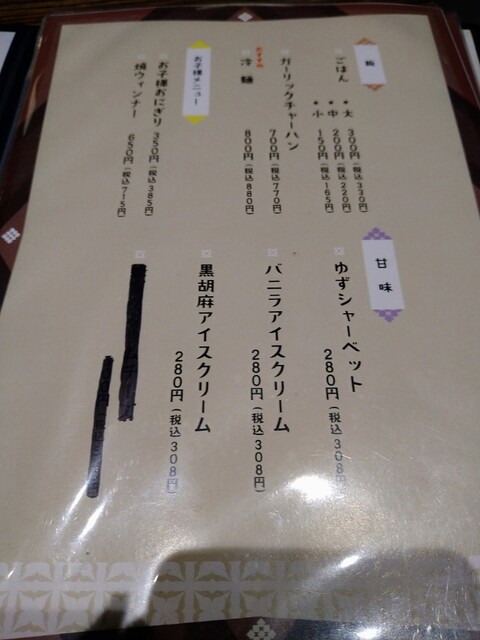 飯
ごはん
●大 300円(税込330円)
●中 200円(税込220円)
●小 150円(税込165円)
ガーリックチャーハン
700円(税込770円)
おすすめ
冷麺
800円(税込880円)
お子様メニュー
お子様おにぎり
350円(税込385円)
焼ウィンナー
650円(税込715円)
甘味
ゆずシャーベット
280円(税込308円)
バニラアイスクリーム
280円(税込308円)
黒胡麻アイスクリーム
280円(税込308円)